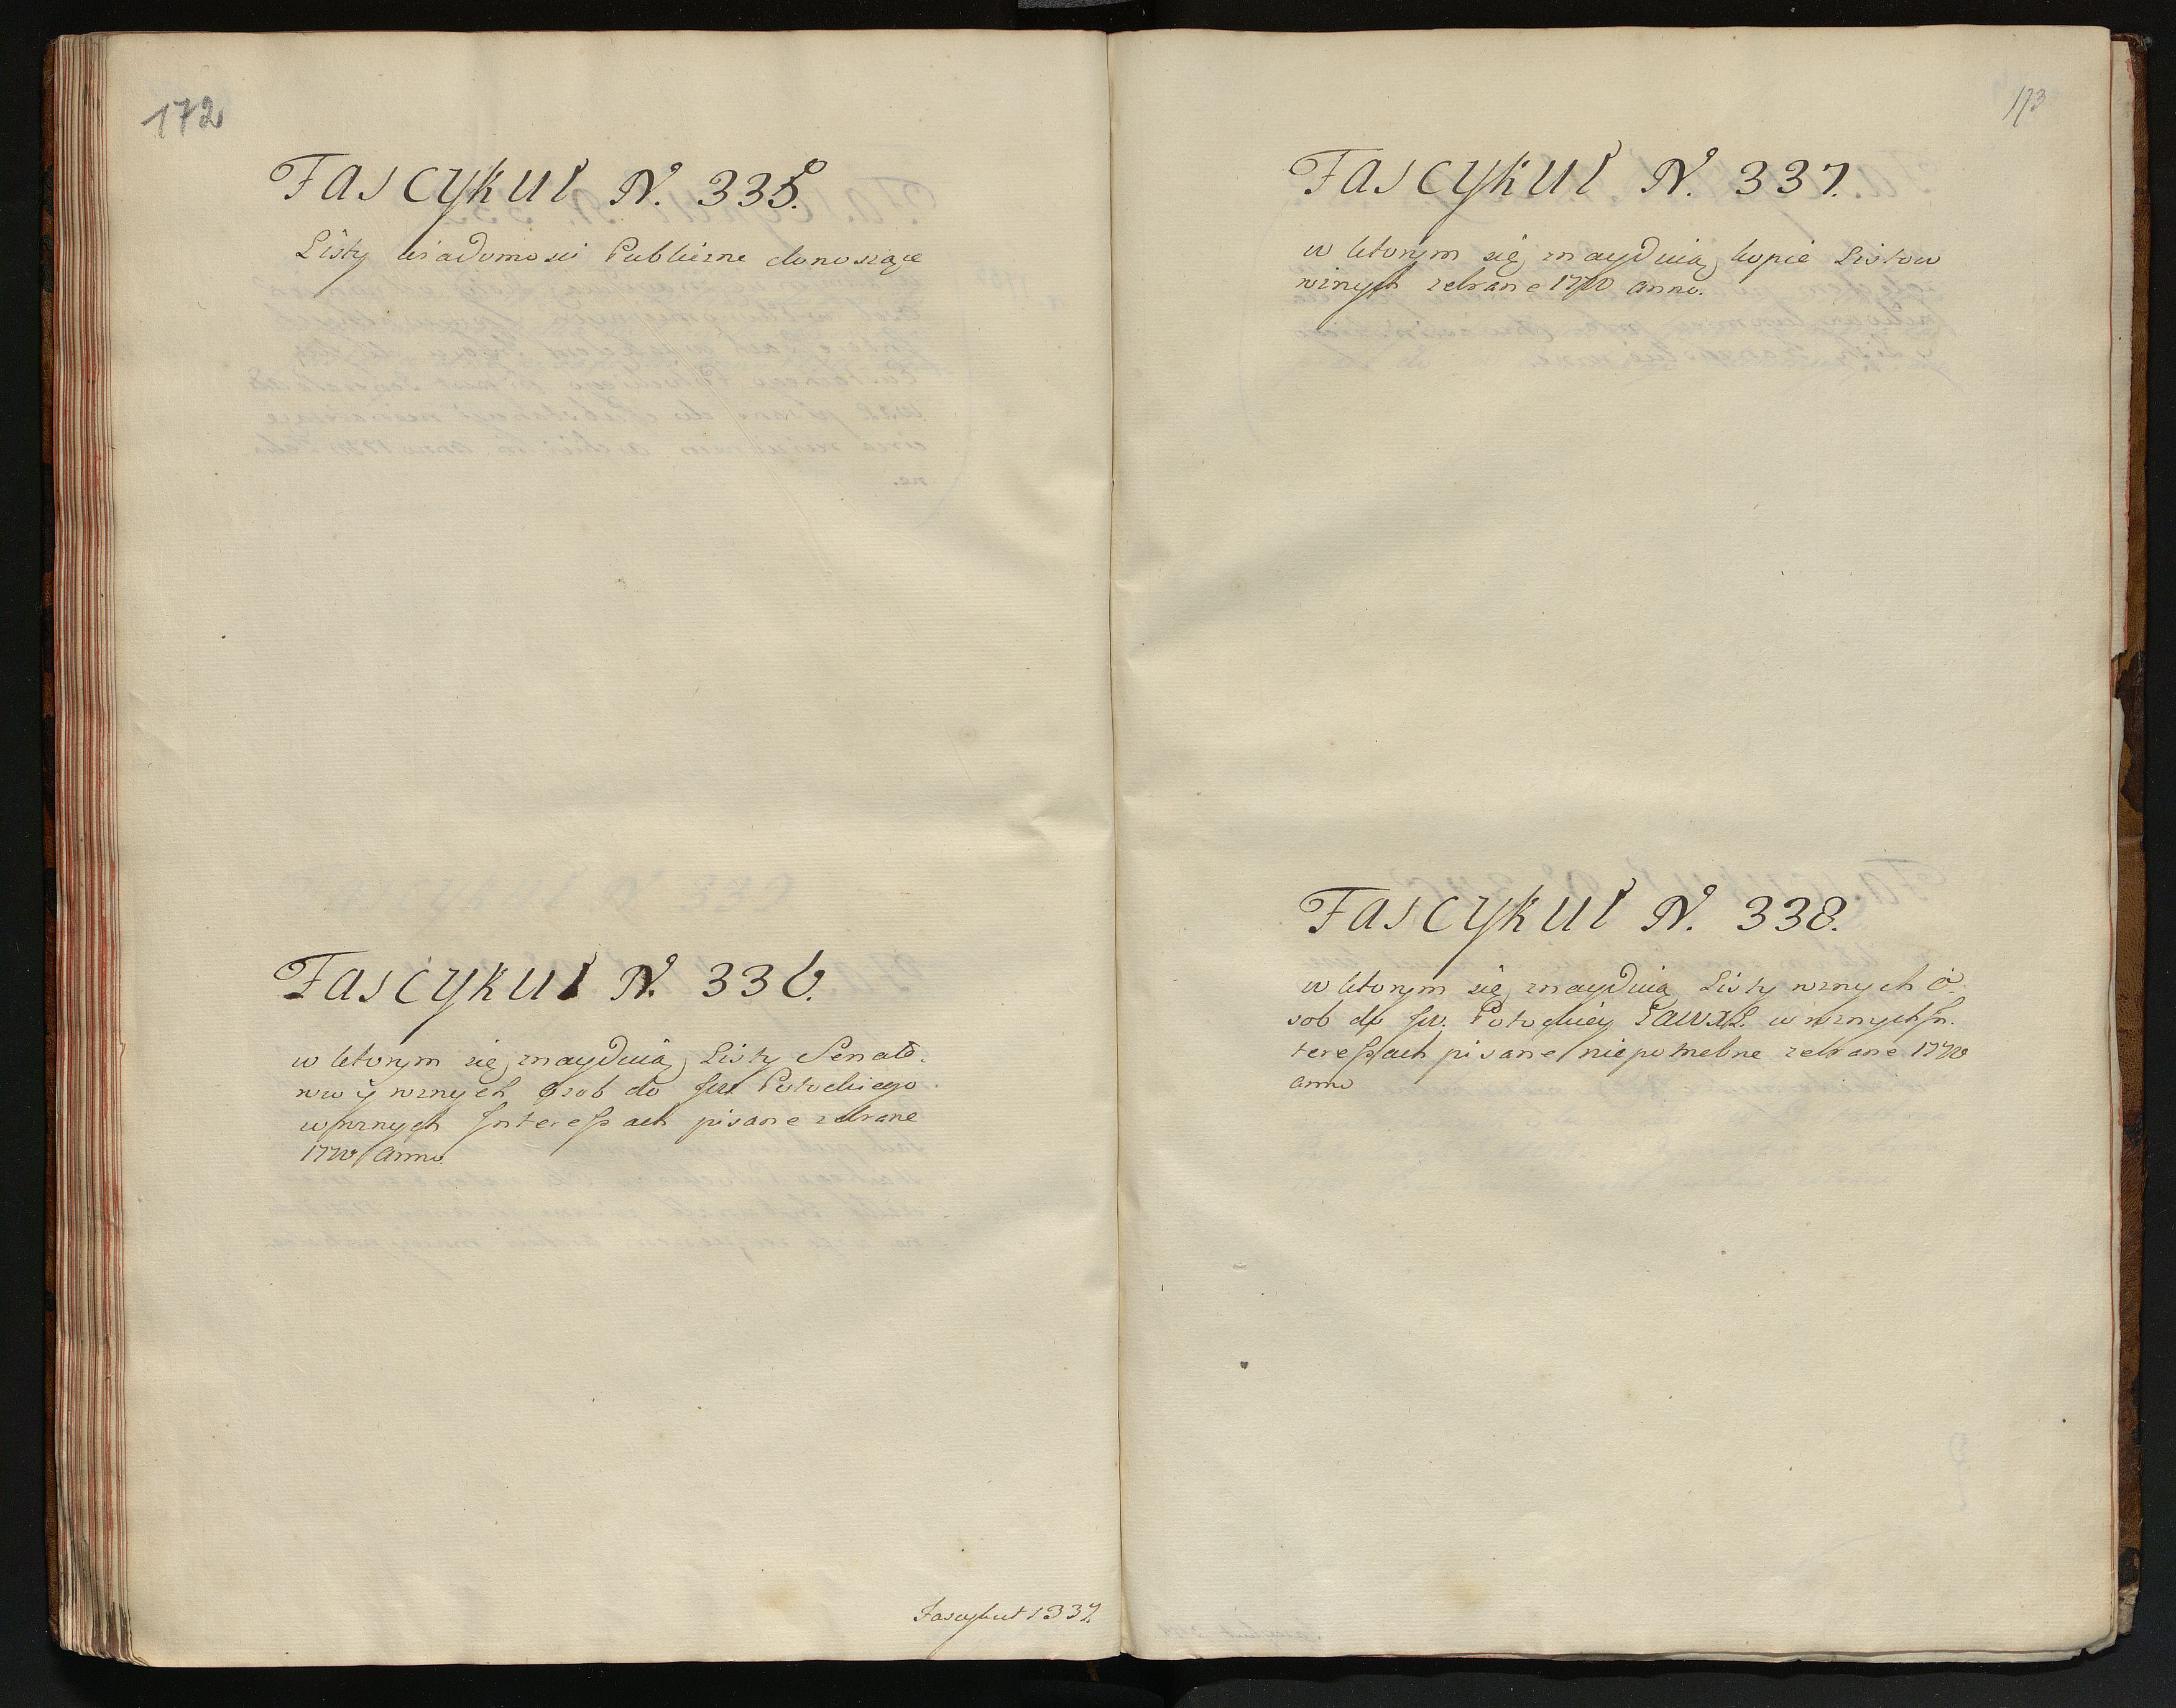 172
Fascykuł N. 335.
Listy wiadomosci Publiczne donoszące
Fascykuł N. 336.
w ktorym się znayduią Listy Senato-
row ÿ roznych Osob do JW Potockiego
w roznych Interessach pisane zebrane
1770 Anno
Fascykuł 337.
173
Fascykuł N. 337.
w ktorym się znayduią kopie Listow
roznych zebrane 1770 anno.
Fascykuł N. 338.
w ktorym się znayduią Listy roznych O-
sob do JW. Potockiey w roznych In-
teressach pisane niepotrzebne zebrane 1770
anno